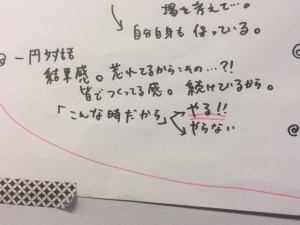 場を考えて…。
↳ 自分自身も保っている。
@ 一円対話
結果感。荒れてるからこその…?!
皆でつくってる感。続けているから。
「こんな時だから」
やる!!
やらない
@
@